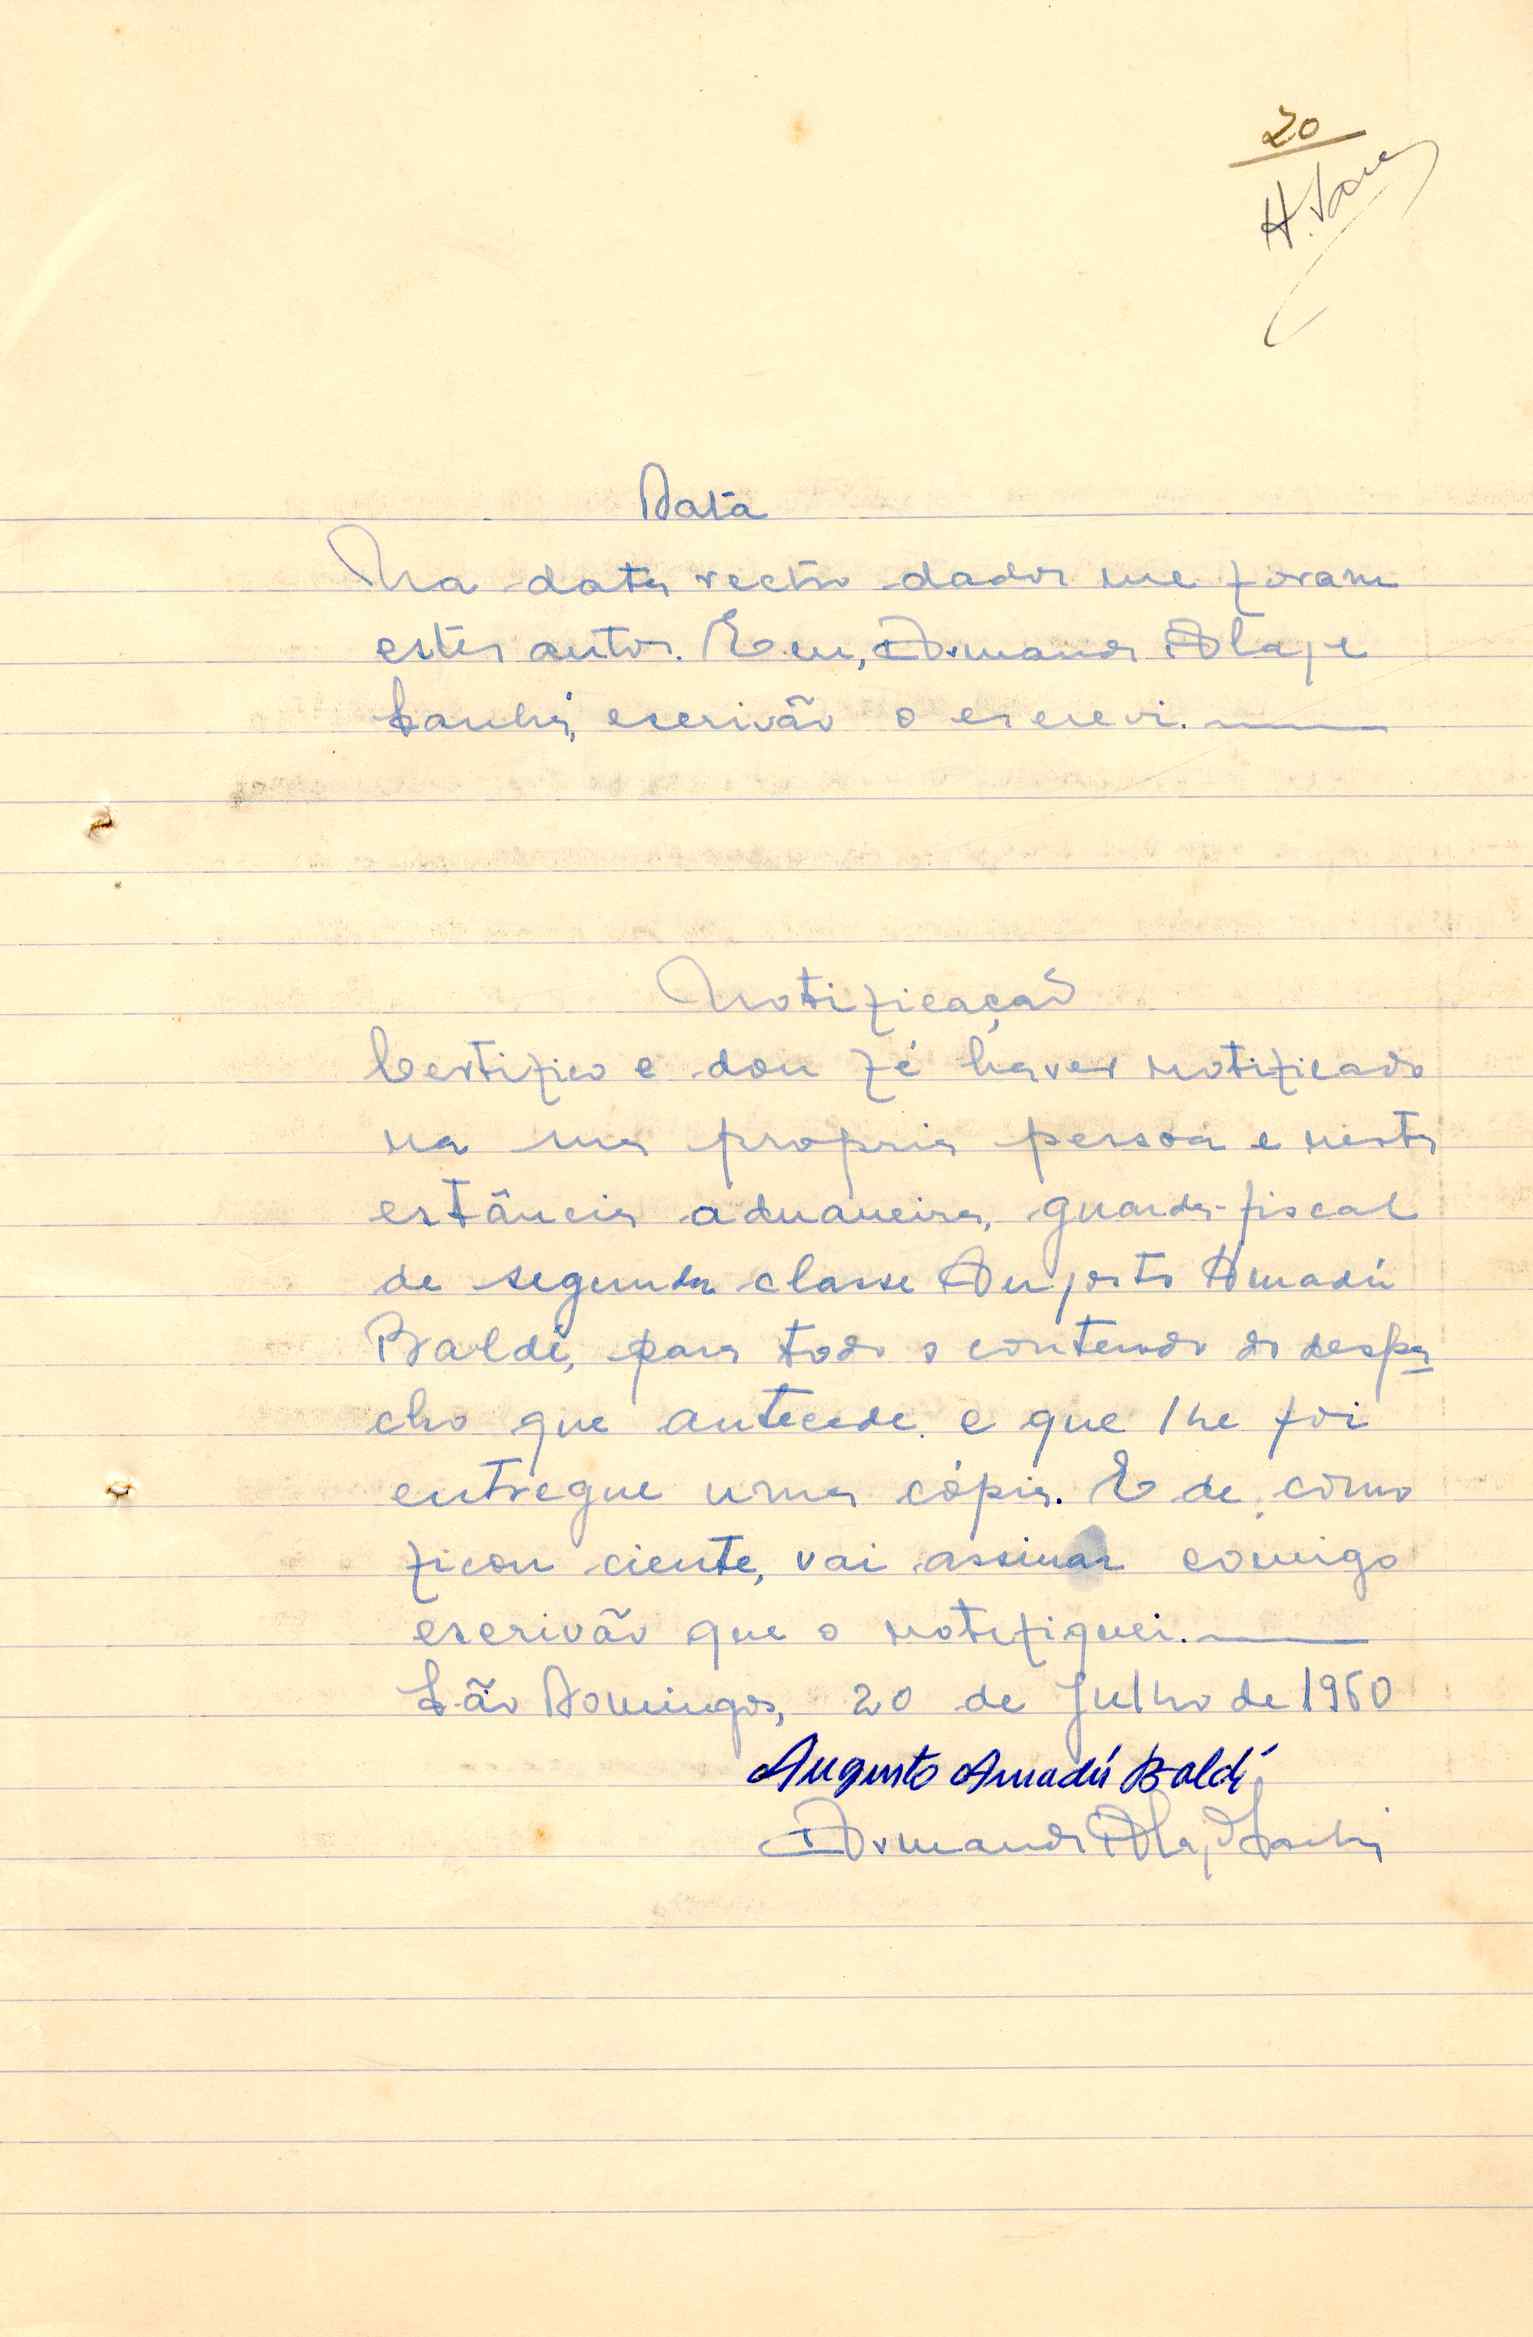 20
Data
Na data recto dados me foram
estes autos. E eu, Armando Alaje
Sanhá, escrivão o escrevi.
Notificação
Certifico e dou fé haver notificado
na sua propria pessoa e nesta
estância aduaneira, guarda-fiscal
de segunda classe Augosto Amadú
Baldé, para todo o conteudo do despa
cho que antecede e que lhe foi
entregue uma cópia. E de como
ficou ciente, vai assinar comigo
escrivão que o notifiquei.
São Domingos, 20 de Julho de 1960
Augusto Amadú Baldé
Armando Alaje Sanhá